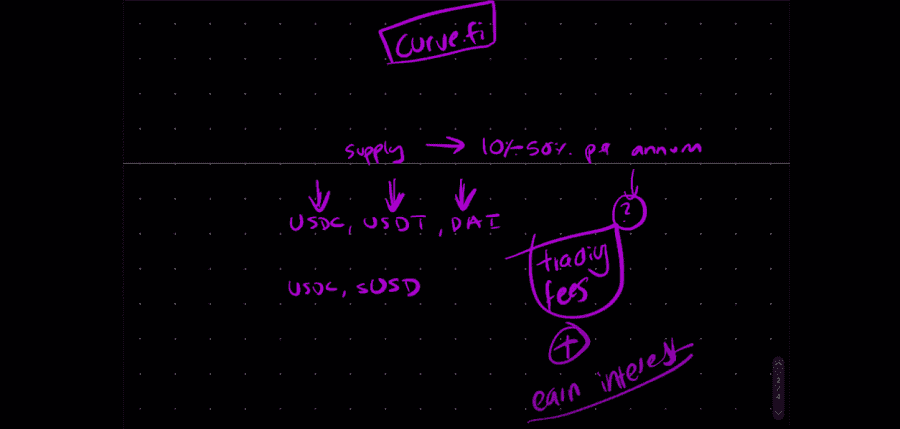 curve.fi
supply → 10%-50% per annum
USDC, USDT, DAI
?
trading
fees
USDC, sUSD
+
earn interest
2
/
4